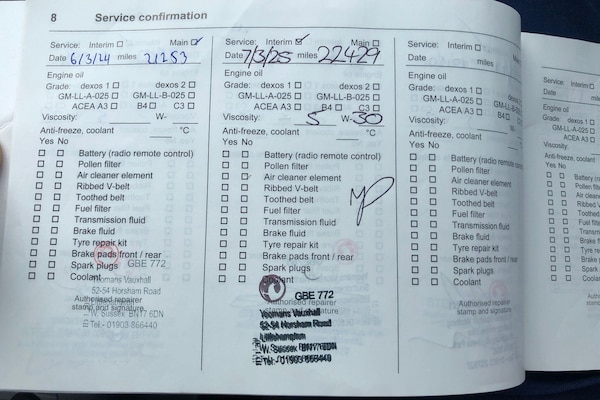 8 Service confirmation
Service: Interim Main
Date 6/3/24 miles 21253
Engine oil
Grade: dexos 1 dexos 2
GM-LL-A-025 GM-LL-B-025
ACEA A3 B4 C3
Viscosity: W-
Anti-freeze, coolant °C
Yes No
Battery (radio remote control)
Pollen filter
Air cleaner element
Ribbed V-belt
Toothed belt
Fuel filter
Transmission fluid
Brake fluid
Tyre repair kit
Brake pads front / rear
Spark plugs
Coolant
GBE 772
Yeomans Vauxhall
52-54 Horsham Road
Authorised repairer
stamp and signature
W. Sussex BN17 6DN
Tel:- 01903 866440
Service: Interim Main
Date 7/3/25 miles 22429
Engine oil
Grade: dexos 1 dexos 2
GM-LL-A-025 GM-LL-B-025
ACEA A3 B4 C3
Viscosity: 5 W-30
Anti-freeze, coolant °C
Yes No
Battery (radio remote control)
Pollen filter
Air cleaner element
Ribbed V-belt
Toothed belt
Fuel filter
Transmission fluid
Brake fluid
Tyre repair kit
Brake pads front / rear
Spark plugs
Coolant
GBE 772
Authorised repairer
Yeomans Vauxhall
52-54 Horsham Road
Littlehampton
W. Sussex BN17 6DN
Tel:- 01903 866440
Service: Interim
Date miles
Engine oil
Grade: dexos 1 dexos 2
GM-LL-A-025 GM-LL-B-025
ACEA A3 B4 C3
Viscosity: W-
Anti-freeze, coolant °C
Yes No
Battery (radio remote control)
Pollen filter
Air cleaner element
Ribbed V-belt
Toothed belt
Fuel filter
Transmission fluid
Brake fluid
Tyre repair kit
Brake pads front / rear
Spark plugs
Coolant
Authorised repairer
stamp and signature
Service: Interim
Date
Engine oil
Grade:
GM-LL-A-025
ACEA A3
Viscosity:
Anti-freeze, coolant
Yes No